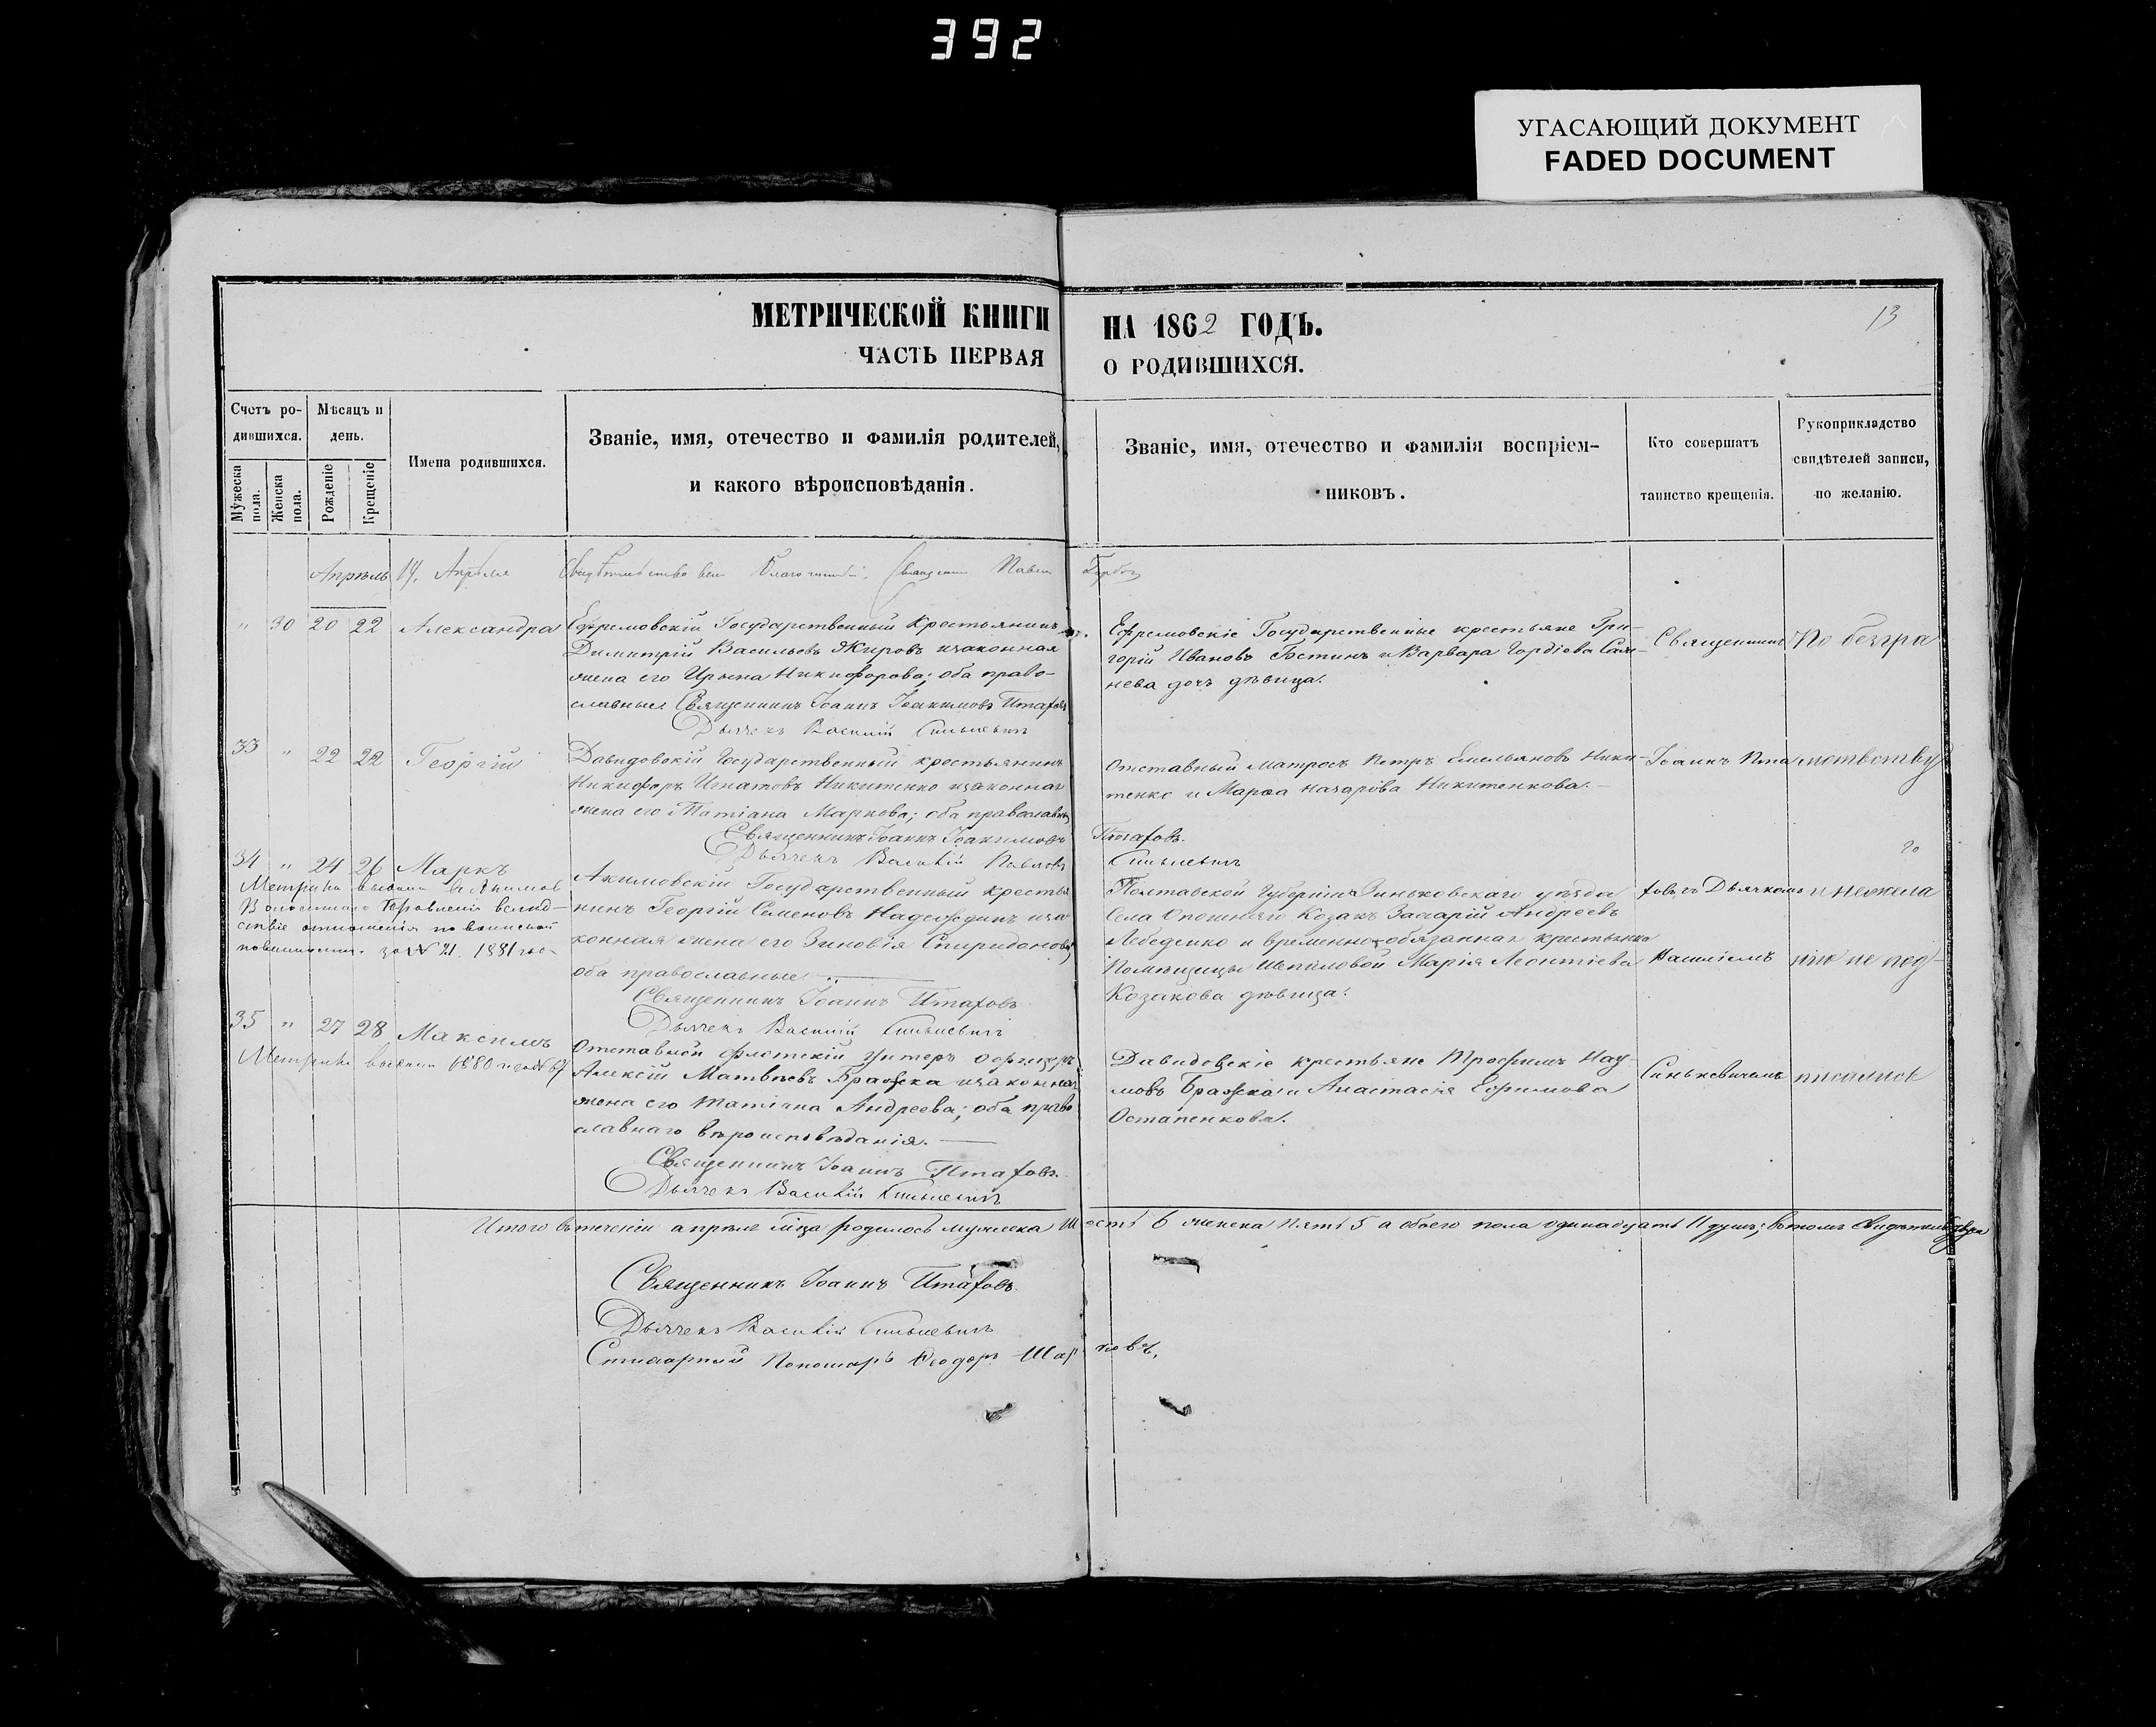 392
УГАСАЮЩИЙ ДОКУМЕНТ
FADED DOCUMENT
МЕТРИЧЕСКОЙ КНИГИ НА 1862 ГОДЪ.
13
ЧАСТЬ ПЕРВАЯ О РОДИВШИХСЯ.
Счетъ ро-
дившихся.
Мужеска пола.
Женска пола.
Мѣсяцъ и
день.
Рожденіе
Крещеніе
Имена родившихся.
Званіе, имя, отечество и фамилія родителей,
и какого вѣроисповѣданія.
Званіе, имя, отечество и фамилія воспріем-
никовъ.
Кто совершатъ
таинство крещенія.
Рукоприкладство
свидѣтелей записи,
по желанію.
Апрѣль
14, Апрѣля Благочинный, Священникъ Павелъ
" 30 20 22 Александра
Ефремовскій Государственный Крестьянинъ
Димитрій Васильевъ Жировъ изаконная
жена его Ирина Никифорова; оба право-
славные. Священникъ Іоаннъ Іоакимовъ Птаховъ
Дьячекъ Василій Синькевичъ
Ефремовскіе Государственные крестьяне Гри-
горій Ивановъ Гостинъ и Варвара Гордіева Сам-
нева дочь дѣвица.
Священникъ
По безгра
33 " 22 22 Георгій
Давидовскій Государственный крестьянинъ
Никифоръ Игнатовъ Никитенко изаконная
жена его Татіана Маркова; оба православны
Священникъ Іоаннъ Іоакимовъ Птаховъ.
Дьячекъ Василій Павловъ Синькевичъ
Отставный матросъ Петръ Емельяновъ Ники-
тенко и Марѳа Назарова Никитенкова.
Іоаннъ Пта
мотвству
34 " 24 26 Маркъ
Метрика выдана въ Акимов
Волостнаго Правленія вслѣд-
ствіе отношенія по воинской
повинности. за № 21. 1881 го
Акимовскій Государственный крестья
нинъ Георгій Семеновъ Надеждинъ иза
конная жена его Зиновія Спиридонова
оба православные.
Священникъ Іоаннъ Птаховъ
Дьячекъ Василій Синькевичъ
Полтавской Губерніи Зиньковскаго уѣзда
села Опошняго Козакъ Захарій Андреевъ
Лебеденко и временно-обязанная крестьянка
Помѣщицы Шепиловой Марія Леонтіева
Козакова дѣвица.
ховъ, съ Дьячкомъ
Василіемъ
и нежела
нію не под
35 " 27 28 Максимъ
Метрика выдана 1880 года
Отставной флотскій унтеръ офицеръ
Алексій Матвѣевъ Бражка изаконная
жена его Татіана Андреева; оба право
славнаго вѣроисповѣданія.
Священникъ Іоаннъ Птаховъ.
Дьячекъ Василій Синькевичъ
Давидовскіе крестьяне Трофимъ Нау-
мовъ Бражка и Анастасія Ефимова
Остапенкова.
Синькевичемъ
писались
Итого втеченіи апрѣля мца родилось мужеска шесть 6 женска пять 5 а обоего пола одинадцать 11 душъ; въ томъ
Священникъ Іоаннъ Птаховъ.
Дьячекъ Василій Синькевичъ
Стихарный Пономарь Ѳеодоръ